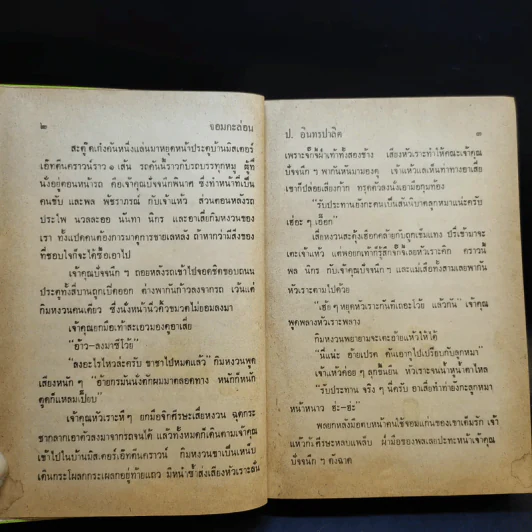 ๒ จอมกะล่อน
สะตู๊ดเก๋งคันหนึ่งแล่นมาหยุดหน้าประตูบ้านมิสเตอร์
เอ๊ทคินคราวน์ราว ๑ เส้น ระคันนี้ราวกับรถบรรทุกหมู ผู้ที่
นั่งอยู่ตอนหน้ารถ คือเจ้าคุณปัจจนึกพินาศ ซึ่งทำหน้าที่เป็น
คนขับ และพล พัชราภรณ์ กับเจ้าแห้ว ส่วนตอนหลังรถ
ประไพ นวลละออ นันทา นิกร และอาเสี่ยกิมหงวนของ
เรา ทั้งแปดคนต้องการมาดูการขายเลหลัง ถ้าหากว่ามีสิ่งของ
ที่ชอบใจก็จะได้ซื้อเอาไป
เจ้าคุณปัจจนึก ฯ ถอยหลังรถเข้าไปจอดชิดขอบถนน
ประตูทั้งสี่บานถูกเปิดออก ต่างพากันก้าวลงจากรถ เว้นแต่
กิมหงวนคนเดียว ซึ่งนั่งหน้านิ่วคิ้วขมวดไม่ยอมลงมา
เจ้าคุณยกมือเท้าสะเอวมองดูอาเสี่ย
“อ้าว–ลงมาซีโว้ย”
“ลงอะไรไหวล่ะครับ ขาชาไปหมดแล้ว” กิมหงวนพูด
เสียงหนัก ๆ “อ้ายกรมันนั่งตักผมมาตลอดทาง หนักก็หนัก
ตูดก็แหลมเปี๊ยบ”
เจ้าคุณหัวเราะหึ ๆ ยกมือจิกศีรษะเสี่ยหงวน ฉุดกระ
ชากลากเอาตัวลงมาจากรถจนได้ แล้วทั้งหมดก็เดินตามเจ้าคุณ
เข้าไปในบ้านมิสเตอร์เอ๊ทคินคราวน์ กิมหงวนขาเป็นเหน็บ
เดินกระโผลกกระเผลกอยู่ท้ายแถว มีหน้าซ้ำส่งเสียงหัวเราะลั่น
ป. อินทรปาลิต ๓
เพราะจั๊กจี้ฝ่าเท้าทั้งสองข้าง เสียงหัวเราะทำให้คณะเจ้าคุณ
ปัจจนึก ฯ พากันหันมามองดู เจ้าแห้วแลเห็นท่าทางอาเสี่ย
เขาก็ปล่อยเสียงก๊าก ทรุดตัวลงนั่งเอามือกุมท้อง
“รับประทานอังกะคนเป็นสันนิบาตลูกหมาแน่ะครับ
เฮ่อะ ๆ เอ๊อก”
เสี่ยหงวนสะดุ้งเฮือกคล้ายกับถูกเข็มแทง ปรี่เข้ามาจะ
เตะเจ้าแห้ว แต่พอยกเท้าก็รู้สึกจั๊กจี้เลยหัวเราะคิก คราวนี้
พล นิกร กับเจ้าคุณปัจจนึก ฯ และแม่เสือทั้งสามเลยพากัน
หัวเราะตามไปด้วย
“เฮ้ย ๆ หยุดหัวเราะกันทีเถอะโว้ย แล้วกัน” เจ้าคุณ
พูดพลางหัวเราะพลาง
กิมหงวนพยายามจะเตะอ้ายแห้วให้ได้
“นี่แน่ะ อ้ายเปรต ดันเอากูไปเปรียบกับลูกหมา”
เจ้าแห้วค่อย ๆ ลุกขึ้นยืน หัวเราะจนน้ำหูน้ำตาไหล
“รับประทาน จริง ๆ นี่ครับ อาเสี่ยทำท่ายังกะลูกหมา
หน้าหนาว ฮ่ะ-ฮ่ะ”
พลยกหลังมือตบหน้าคนใช้จอมแก่นของเขาเต็มรัก เจ้า
แห้วก้มศีรษะหลบแพล็บ ฝ่ามือของพลเลยปะทะหน้าเจ้าคุณ
ปัจจนึก ฯ ดังฉาด